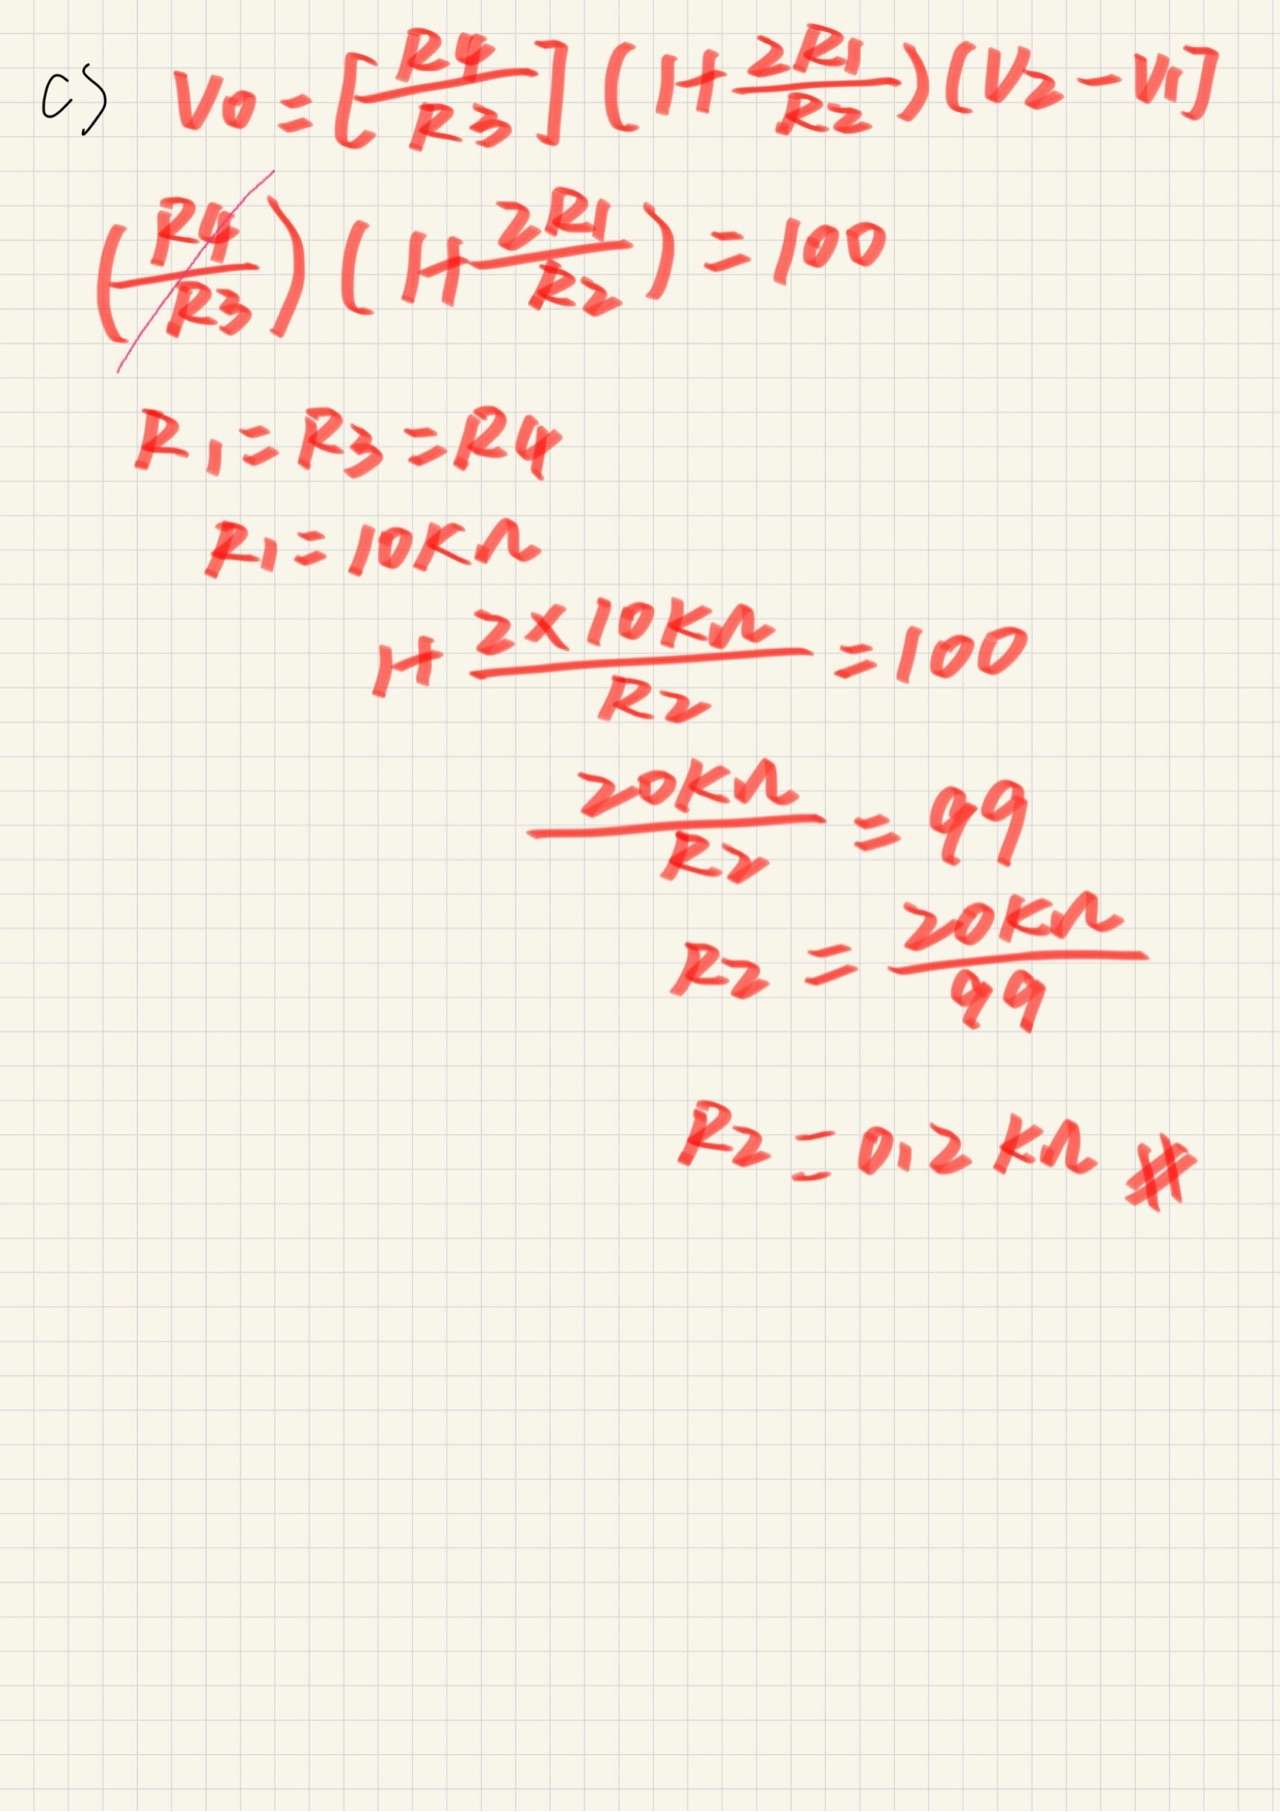 c) V0 = [R4/R3] (1+ 2R1/R2) (V2 - V1]
(R4/R3) (1+ 2R1/R2) = 100
R1 = R3 = R4
R1 = 10KΩ
1+ 2×10KΩ/R2 = 100
20KΩ/R2 = 99
R2 = 20KΩ/99
R2 = 0.2 KΩ #